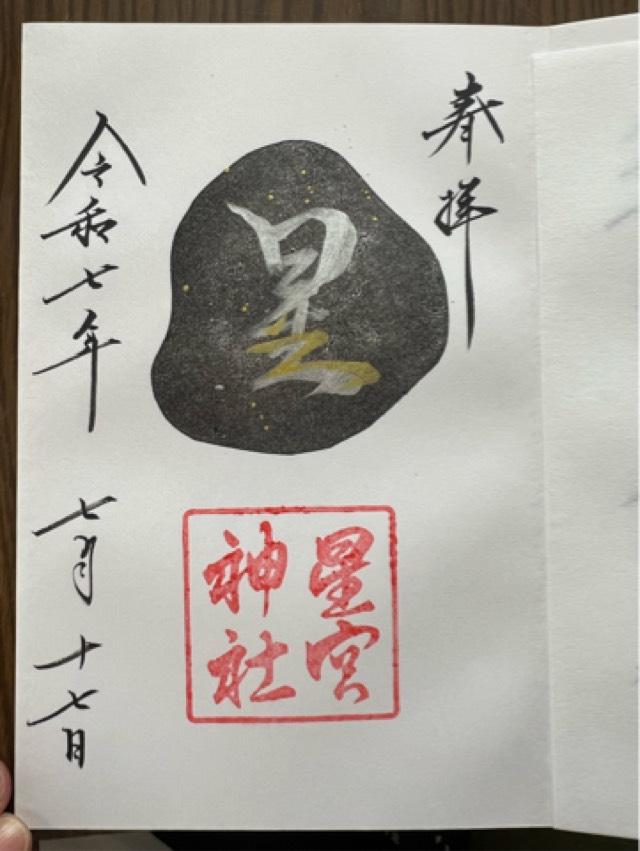 奉拝
星
星宮
神社
令和七年
七月十七日